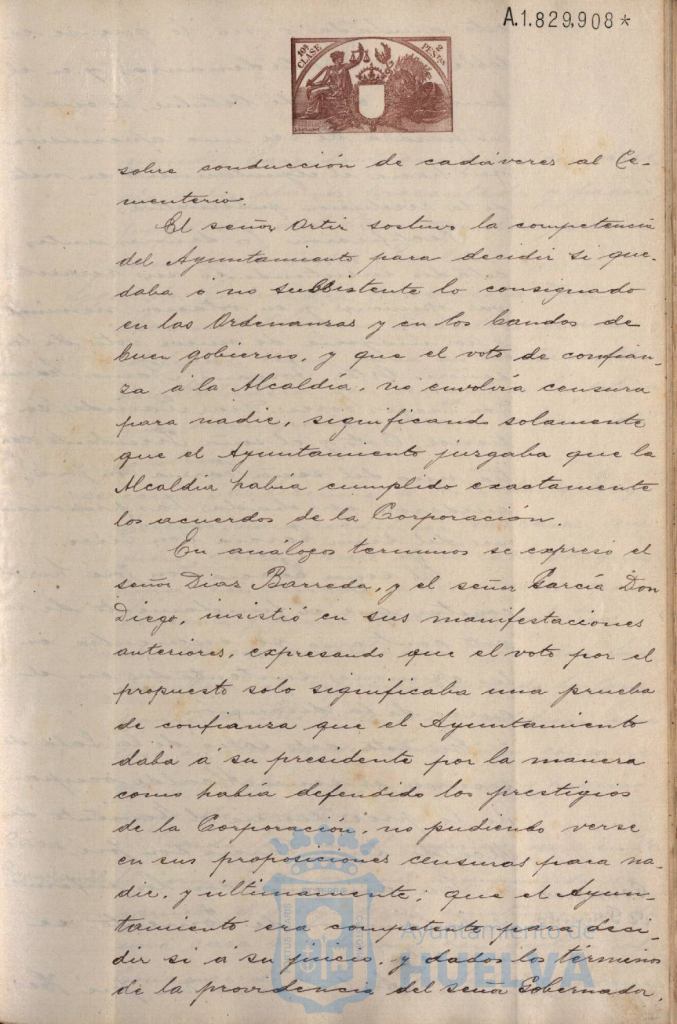 A.1.829,908*
10ª CLASE
2 PESETAS
sobre conducción de cadáveres al Ce-
menterio.
El señor Ortiz sostuvo la competencia
del Ayuntamiento para decidir si que-
daba ó no subsistente lo consignado
en las Ordenanzas y en los bandos de
buen gobierno, y que el voto de confian-
za á la Alcaldía, no envolvía censura
para nadie, significando solamente
que el Ayuntamiento juzgaba que la
Alcaldía había cumplido exactamente
los acuerdos de la Corporación.
En análogos terminos se expresó el
señor Diaz Barreda, y el señor García Don
Diego, insistió en sus manifestaciones
anteriores, expresando que el voto por el
propuesto sólo significaba una prueba
de confianza que el Ayuntamiento
daba á su presidente por la manera
como había defendido los prestigios
de la Corporación, no pudiendo verse
en sus proposiciones censuras para na-
die, y últimamente, que el Ayun-
tamiento era competente para deci-
dir si á su juicio, y dados los términos
de la providencia del señor Gobernador,
Ayuntamiento de
HUELVA